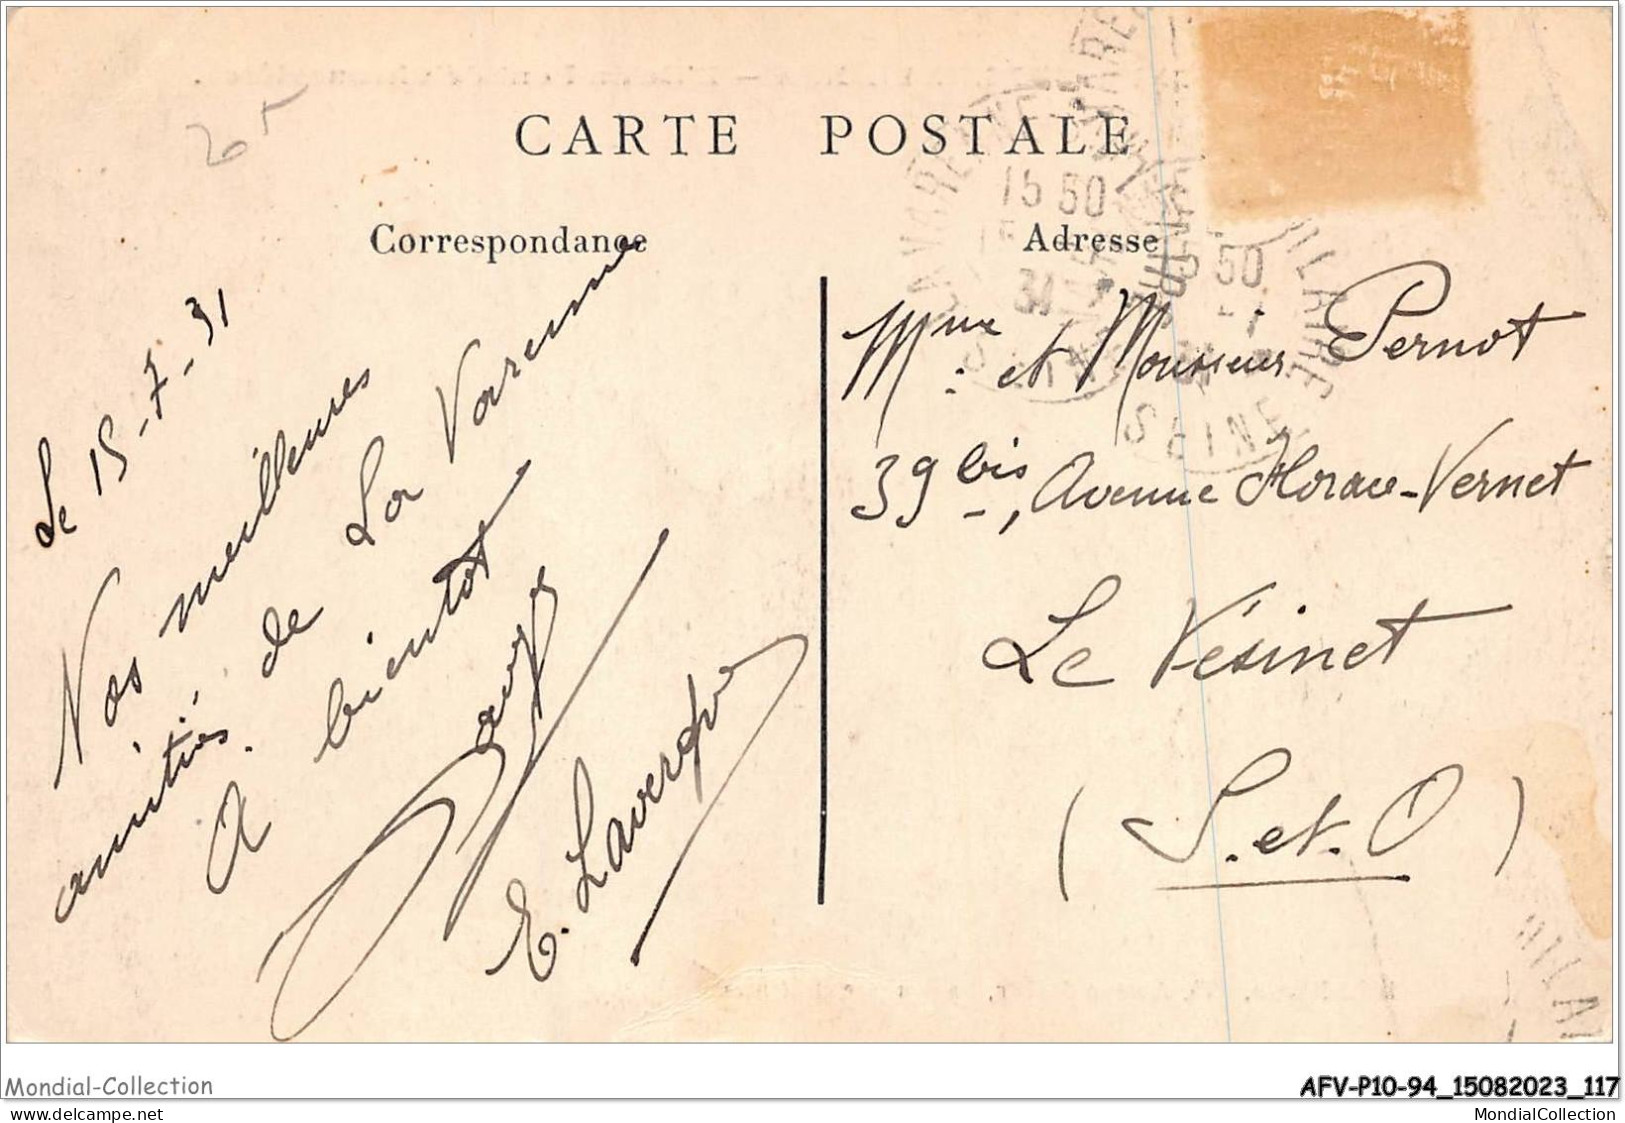 CARTE POSTALE
Correspondance
Le 15-7-31
Nos meilleures
amitiés de La Varenne
A bientot
E. Lavergne
Adresse
Mme et Monsieur Pernot
39 bis, Avenue Horace-Vernet
Le Vésinet
(S. et. O)
15 50
SEINE
Mondial-Collection
AFV-P10-94_15082023_117
www.delcampe.net
MondialCollection